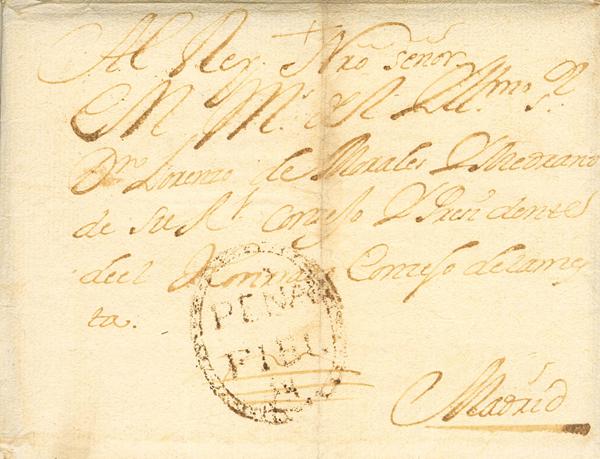 Al Rey Nro señor
M. Ms. a. Rs. Ill.mo Sr.
Dn. Lorenzo de Morales Y Medrano
de su Rl. Consejo Y Presidente
deel Honrrado Consejo de la mes
ta.
PEÑA
FIEL
Madrid